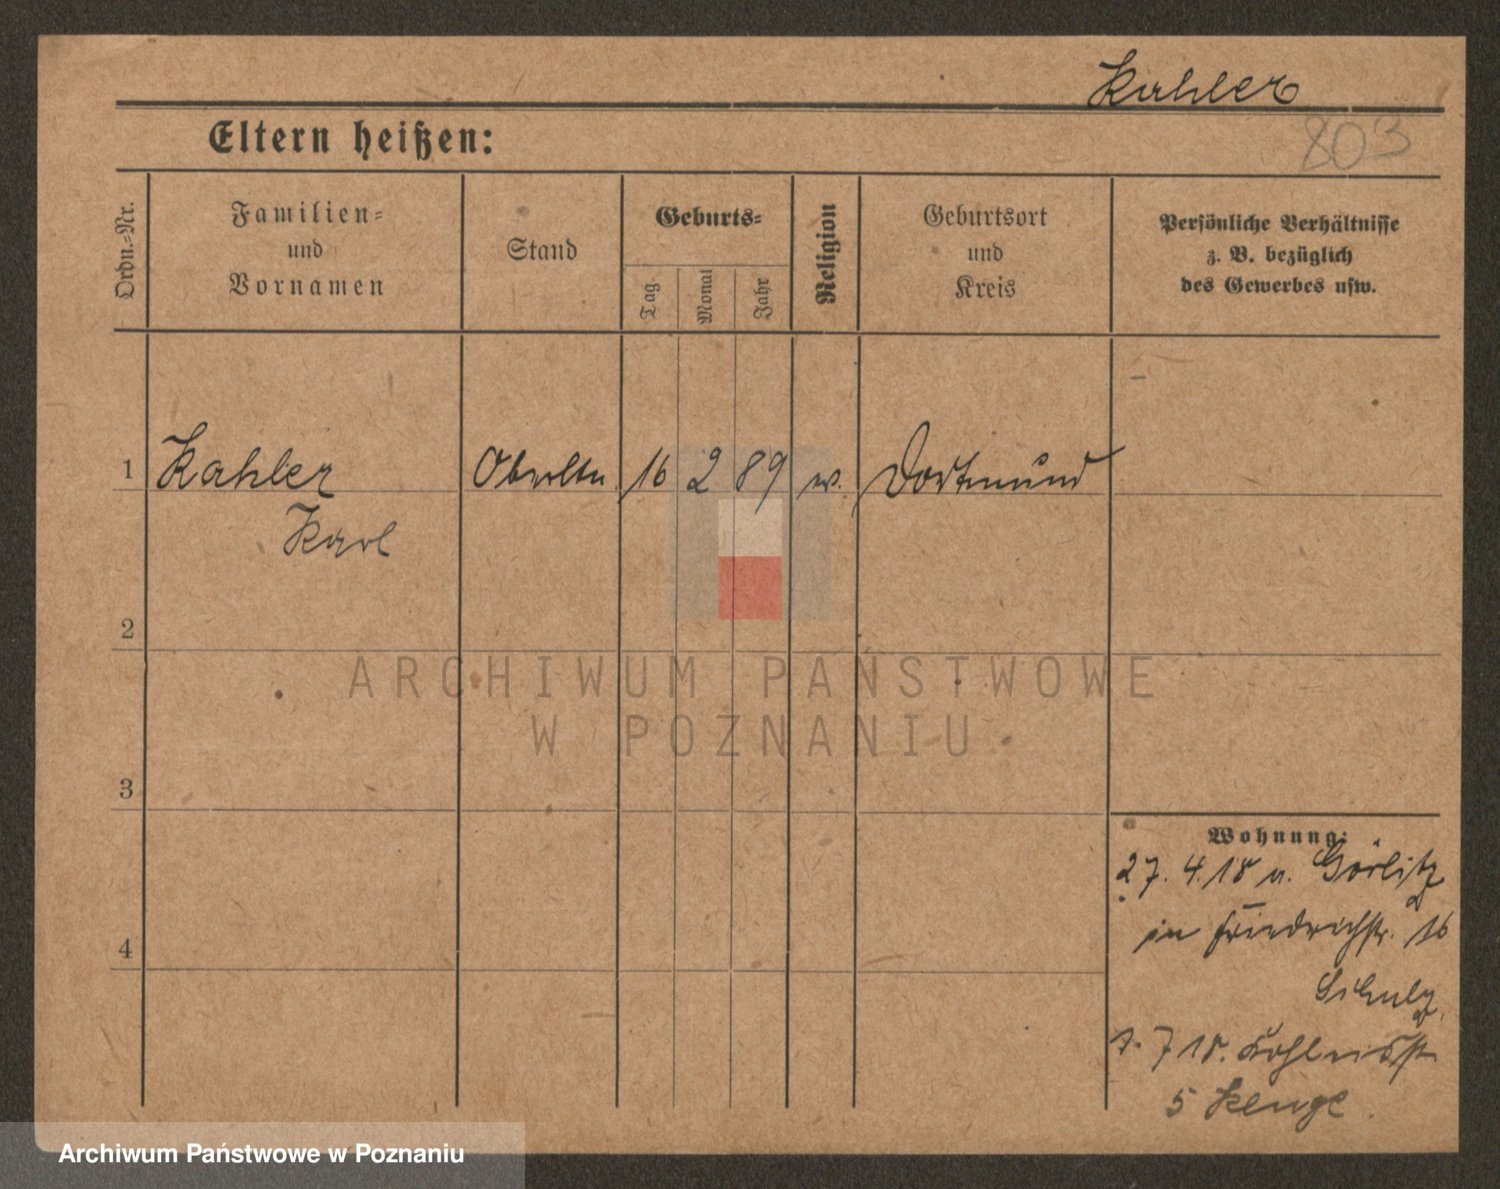 Kahler
803
Eltern heißen:
Ordn.-Nr.
Familien-
und
Vornamen
Stand
Geburts-
Tag
Monat
Jahr
Religion
Geburtsort
und
Kreis
Persönliche Verhältnisse
z. B. bezüglich
des Gewerbes usw.
1 Kahler Oberltn. 16 2 89 ev. Dortmund
Karl
2
3
4
Wohnung:
27. 4. 18 v. Görlitz
in Friedrichstr. 16
Schulz.
7. 18.
5
ARCHIWUM PAŃSTWOWE
W POZNANIU
Archiwum Państwowe w Poznaniu